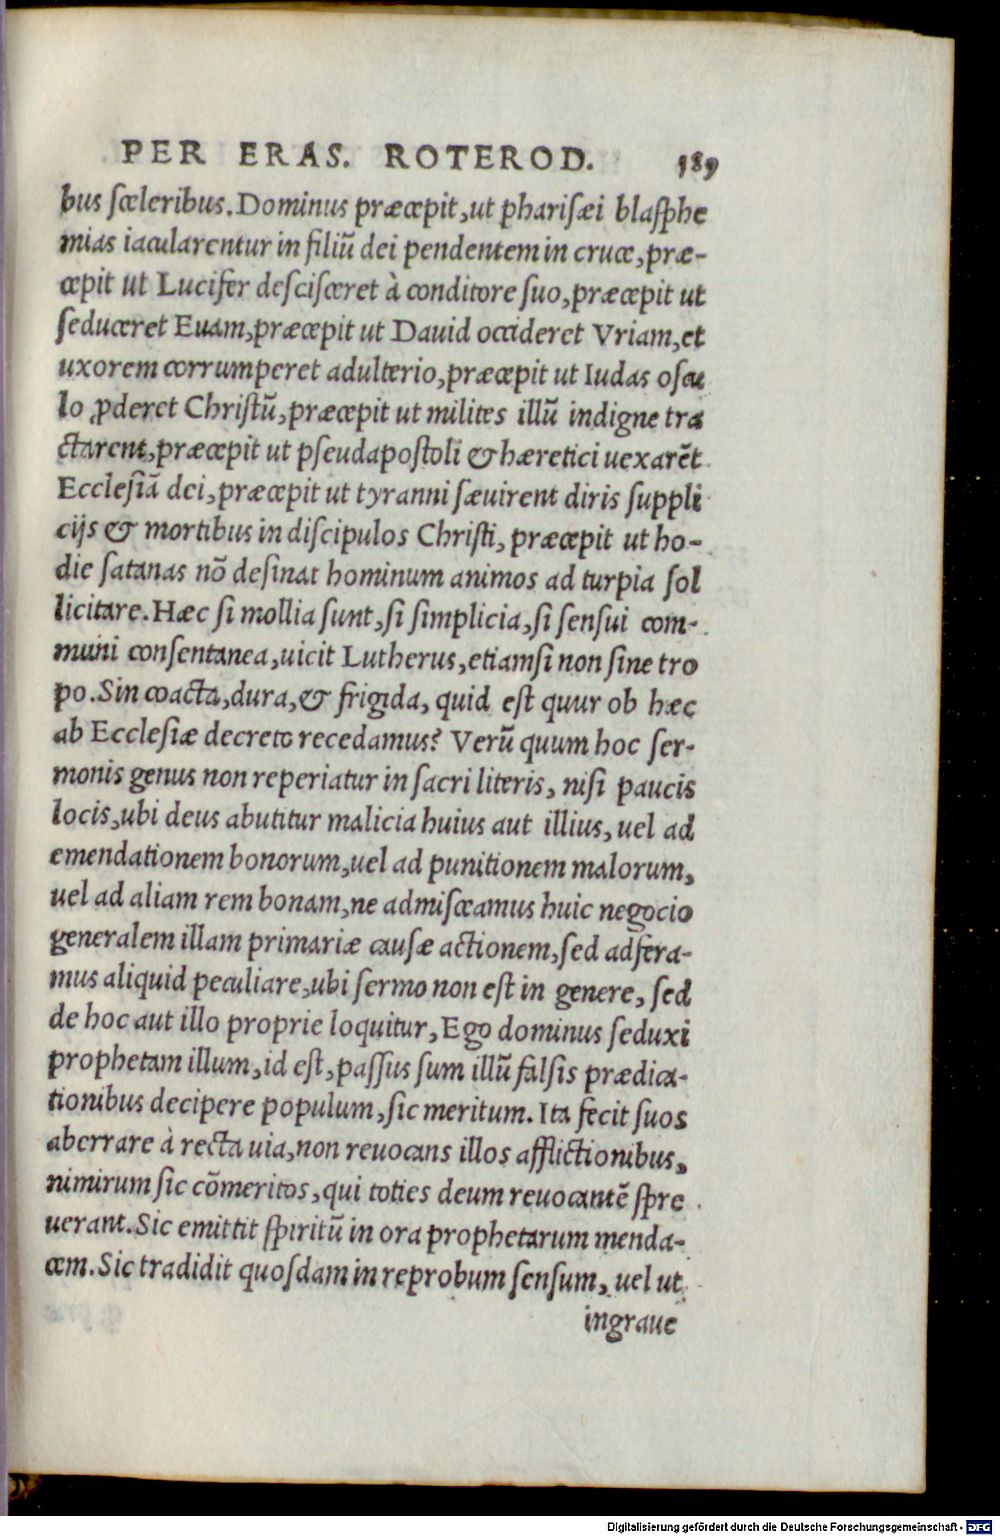 PER ERAS. ROTEROD. 189
bus sceleribus. Dominus præcepit, ut pharisæi blasphe
mias iacularentur in filiū dei pendentem in cruce, præ-
cepit ut Lucifer descisceret à conditore suo, præcepit ut
seduceret Euam, præcepit ut Dauid occideret Vriam, et
uxorem corrumperet adulterio, præcepit ut Iudas oscu
lo ꝓderet Christū, præcepit ut milites illū indigne tra
ctarent, præcepit ut pseudapostoli & hæretici uexarēt
Ecclesiā dei, præcepit ut tyranni sæuirent diris suppli
cijs & mortibus in discipulos Christi, præcepit ut ho-
die satanas nō desinat hominum animos ad turpia sol
licitare. Hæc si mollia sunt, si simplicia, si sensui com-
muni consentanea, uicit Lutherus, etiamsi non sine tro
po. Sin coacta, dura, & frigida, quid est quur ob hæc
ab Ecclesiæ decreto recedamus? Verū quum hoc ser-
monis genus non reperiatur in sacri literis, nisi paucis
locis, ubi deus abutitur malicia huius aut illius, uel ad
emendationem bonorum, uel ad punitionem malorum,
uel ad aliam rem bonam, ne admisceamus huic negocio
generalem illam primariæ causæ actionem, sed adfera-
mus aliquid peculiare, ubi sermo non est in genere, sed
de hoc aut illo proprie loquitur, Ego dominus seduxi
prophetam illum, id est, passus sum illū falsis prædica-
tionibus decipere populum, sic meritum. Ita fecit suos
aberrare à recta uia, non reuocans illos afflictionibus,
nimirum sic cōmeritos, qui toties deum reuocantē spre
uerant. Sic emittit spiritū in ora prophetarum menda-
cem. Sic tradidit quosdam in reprobum sensum, uel ut
ingraue
Digitalisierung gefördert durch die Deutsche Forschungsgemeinschaft - DFG